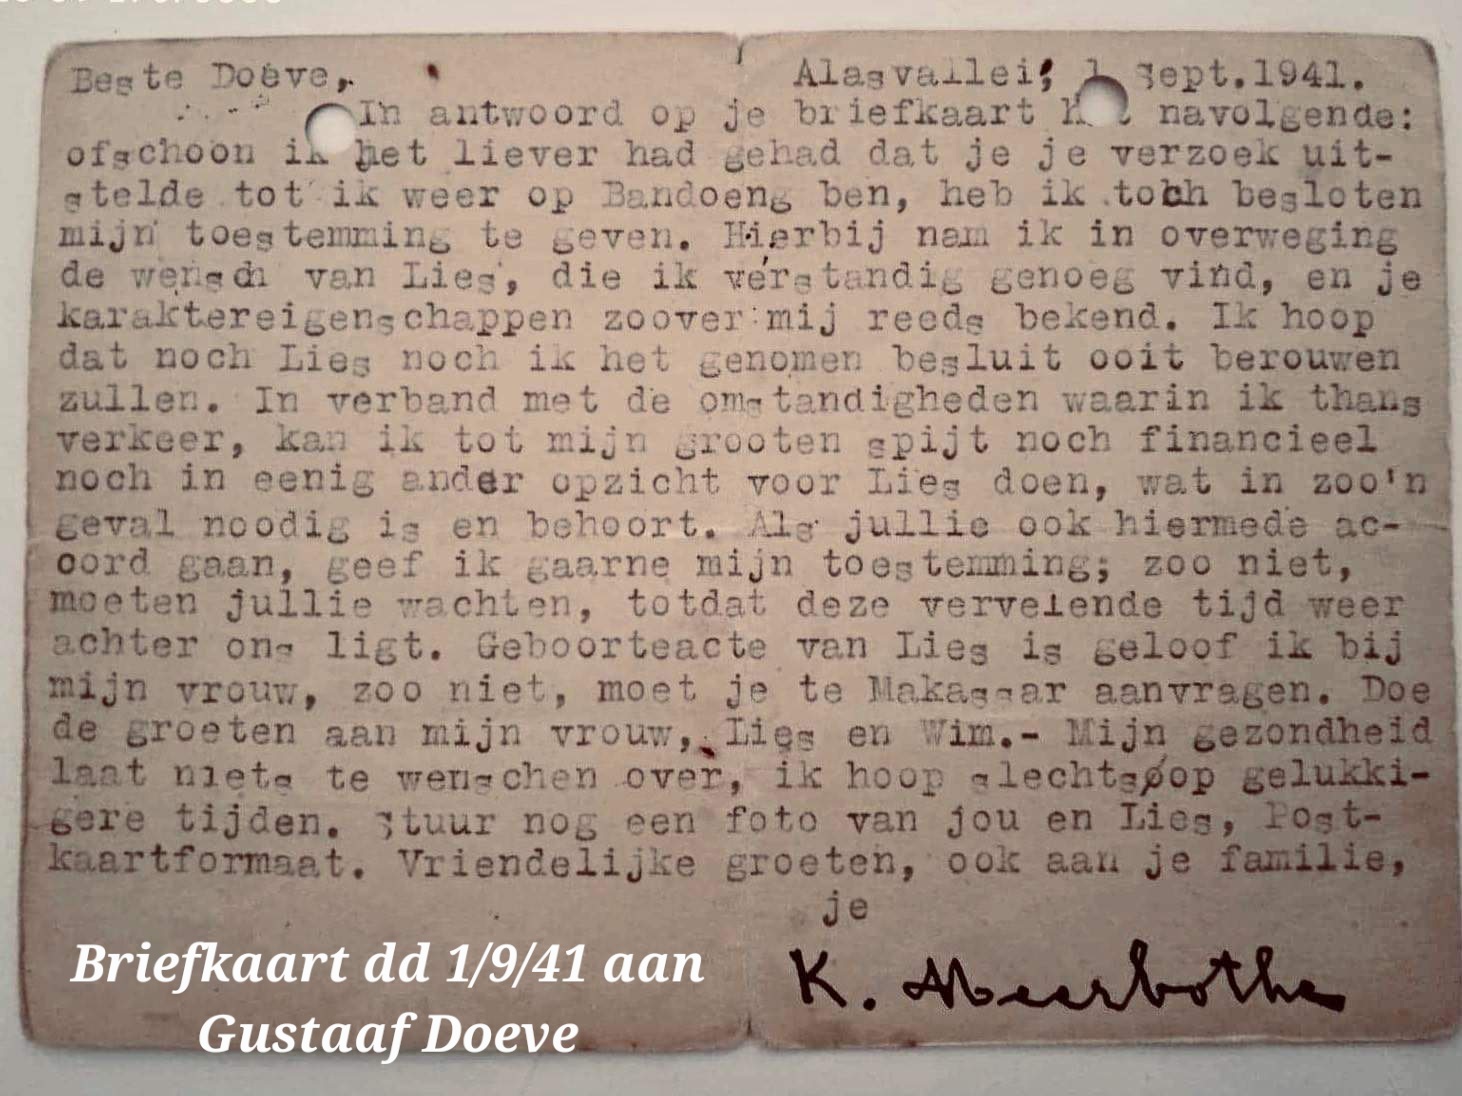 Beste Doeve, Alasvallei, 1 Sept.1941.
In antwoord op je briefkaart het navolgende:
ofschoon ik het liever had gehad dat je je verzoek uit-
stelde tot ik weer op Bandoeng ben, heb ik toch besloten
mijn toestemming te geven. Hierbij nam ik in overweging
de wensch van Lies, die ik verstandig genoeg vind, en je
karaktereigenschappen zoover mij reeds bekend. Ik hoop
dat noch Lies noch ik het genomen besluit ooit berouwen
zullen. In verband met de omstandigheden waarin ik thans
verkeer, kan ik tot mijn grooten spijt noch financieel
noch in eenig ander opzicht voor Lies doen, wat in zoo'n
geval noodig is en behoort. Als jullie ook hiermede ac-
oord gaan, geef ik gaarne mijn toestemming; zoo niet,
moeten jullie wachten, totdat deze vervelende tijd weer
achter ons ligt. Geboorteacte van Lies is geloof ik bij
mijn vrouw, zoo niet, moet je te Makassar aanvragen. Doe
de groeten aan mijn vrouw, Lies en Wim.- Mijn gezondheid
laat niets te wenschen over, ik hoop slechts op gelukki-
gere tijden. Stuur nog een foto van jou en Lies, Post-
kaartformaat. Vriendelijke groeten, ook aan je familie,
je
K. Meerbothe
Briefkaart dd 1/9/41 aan
Gustaaf Doeve